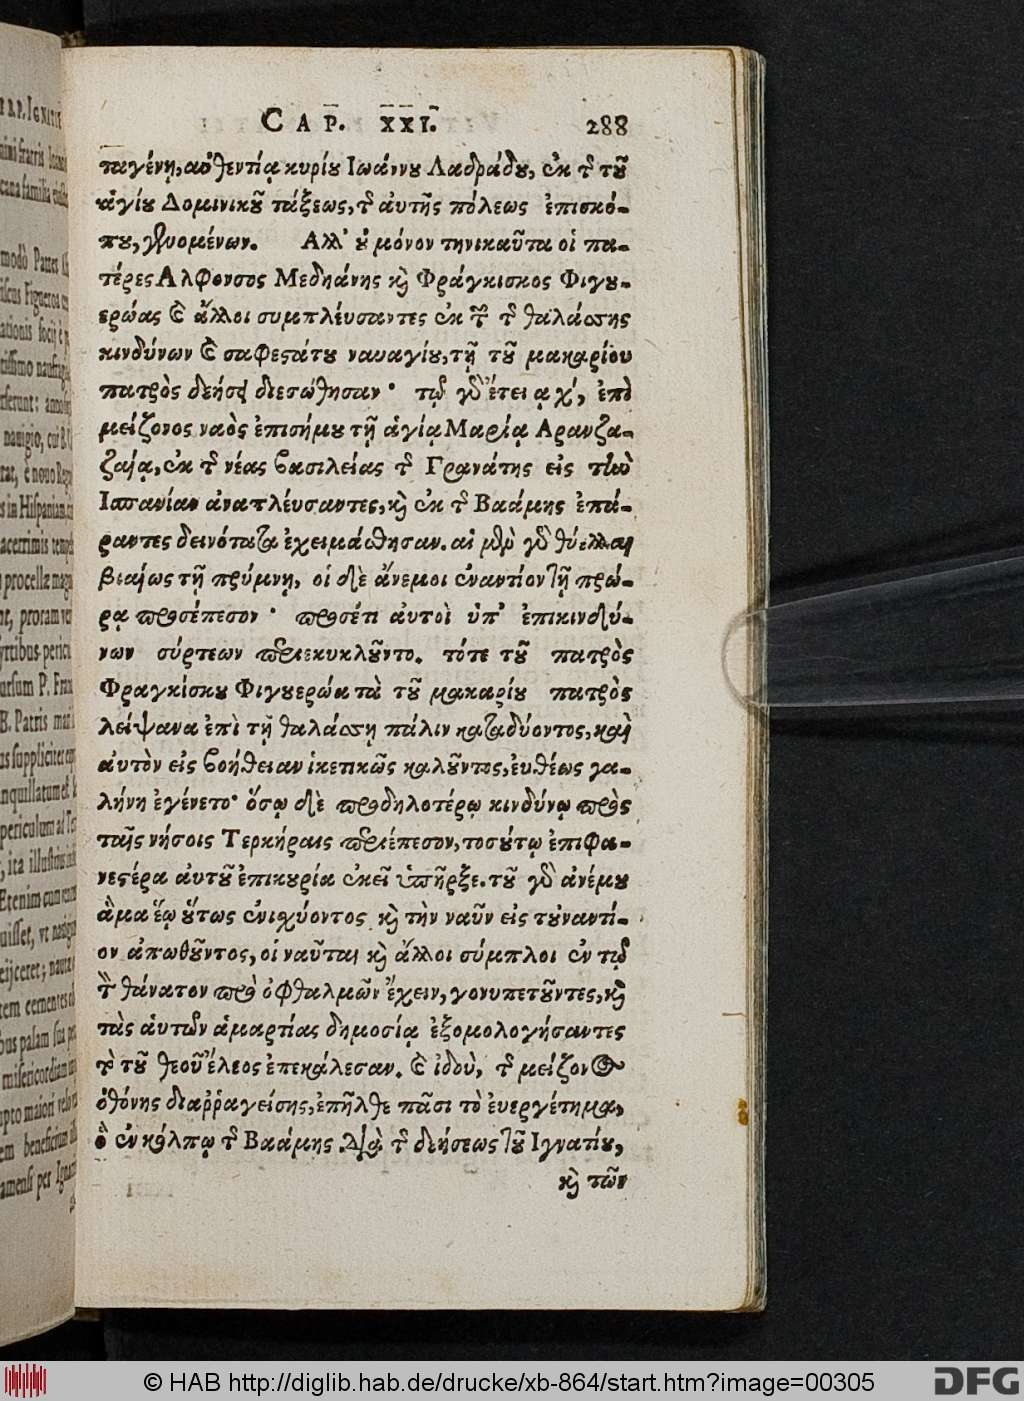 CAP. XXI. 288
ταγένῃ, αὐθεντίᾳ κυρίου Ἰωάννου Λαδράδου, ἐκ τῆς τοῦ
ἁγίου Δομινικοῦ τάξεως, τῆς αὐτῆς πόλεως ἐπισκό-
που, γευομένων. Ἀλλ' οὐ μόνον τηνικαῦτα οἱ πα-
τέρες Αλφονσος Μεδηάνης καὶ Φράγκισκος Φιγου-
ερώας καὶ ἄλλοι συμπλεύσαντες ἐκ τῶν τῆς θαλάσσης
κινδύνων καὶ σαφεστάτου ναυαγίου, τῇ τοῦ μακαρίου
πατρὸς δεήσει διεσώθησαν· τῷ γὰρ ἔτει ᾳ χ', ἐπὶ
μείζονος ναὸς ἐπισήμου τῇ ἁγίᾳ Μαρίᾳ Αρανζα-
ζαίᾳ, ἐκ τῆς νέας βασιλείας τῆς Γρανάτης εἰς τὴν
Ἰσπανίαν ἀναπλεύσαντες, καὶ ἐκ τῆς Βαάμης ἐπά-
ραντες δεινότατα ἐχειμάσθησαν. αἱ μὲν γὰρ θύελλαι
βιαίως τῇ πρύμνῃ, οἱ δὲ ἄνεμοι ἐναντίον τῇ πρώ-
ρᾳ προσέπεσον· προσέτι αὐτοὶ ὑπ' ἐπικινδύ-
νων σύρτεων περιεκυκλοῦντο. τότε τοῦ πατρὸς
Φραγκίσκου Φιγουερώα τὰ τοῦ μακαρίου πατρὸς
λείψανα ἐπὶ τῇ θαλάσσῃ πάλιν καταδύοντος, καὶ
αὐτὸν εἰς βοήθειαν ἱκετικῶς καλοῦντος, εὐθέως γα-
λήνη ἐγένετο· ὅσῳ δὲ προδηλοτέρῳ κινδύνῳ πρὸς
ταῖς νήσοις Τερκήραις περιέπεσον, τοσούτῳ ἐπιφα-
νεστέρα αὐτοῦ ἐπικουρία ἐκεῖ ὑπῆρξε. τοῦ γὰρ ἀνέμου
ἅμα ἕῳ οὕτως ἐνισχύοντος καὶ τὴν ναῦν εἰς τοὐναντί-
ον ἀπωθοῦντος, οἱ ναῦται καὶ ἄλλοι σύμπλοι ἐν τῷ
τὸν θάνατον πρὸ ὀφθαλμῶν ἔχειν, γονυπετοῦντες, καὶ
τὰς αὑτῶν ἁμαρτίας δημοσίᾳ ἐξομολογήσαντες
τὸ τοῦ θεοῦ ἔλεος ἐπεκάλεσαν. καὶ ἰδοὺ, τῆς μείζονος
ὀθόνης διαῤῥαγείσης, ἐπῆλθε πᾶσι τὸ εὐεργέτημα,
ὃ ἐν κόλπῳ τῆς Βαάμης διὰ τῆς δεήσεως τοῦ Ιγνατίου,
καὶ τῶν
© HAB http://diglib.hab.de/drucke/xb-864/start.htm?image=00305
DFG